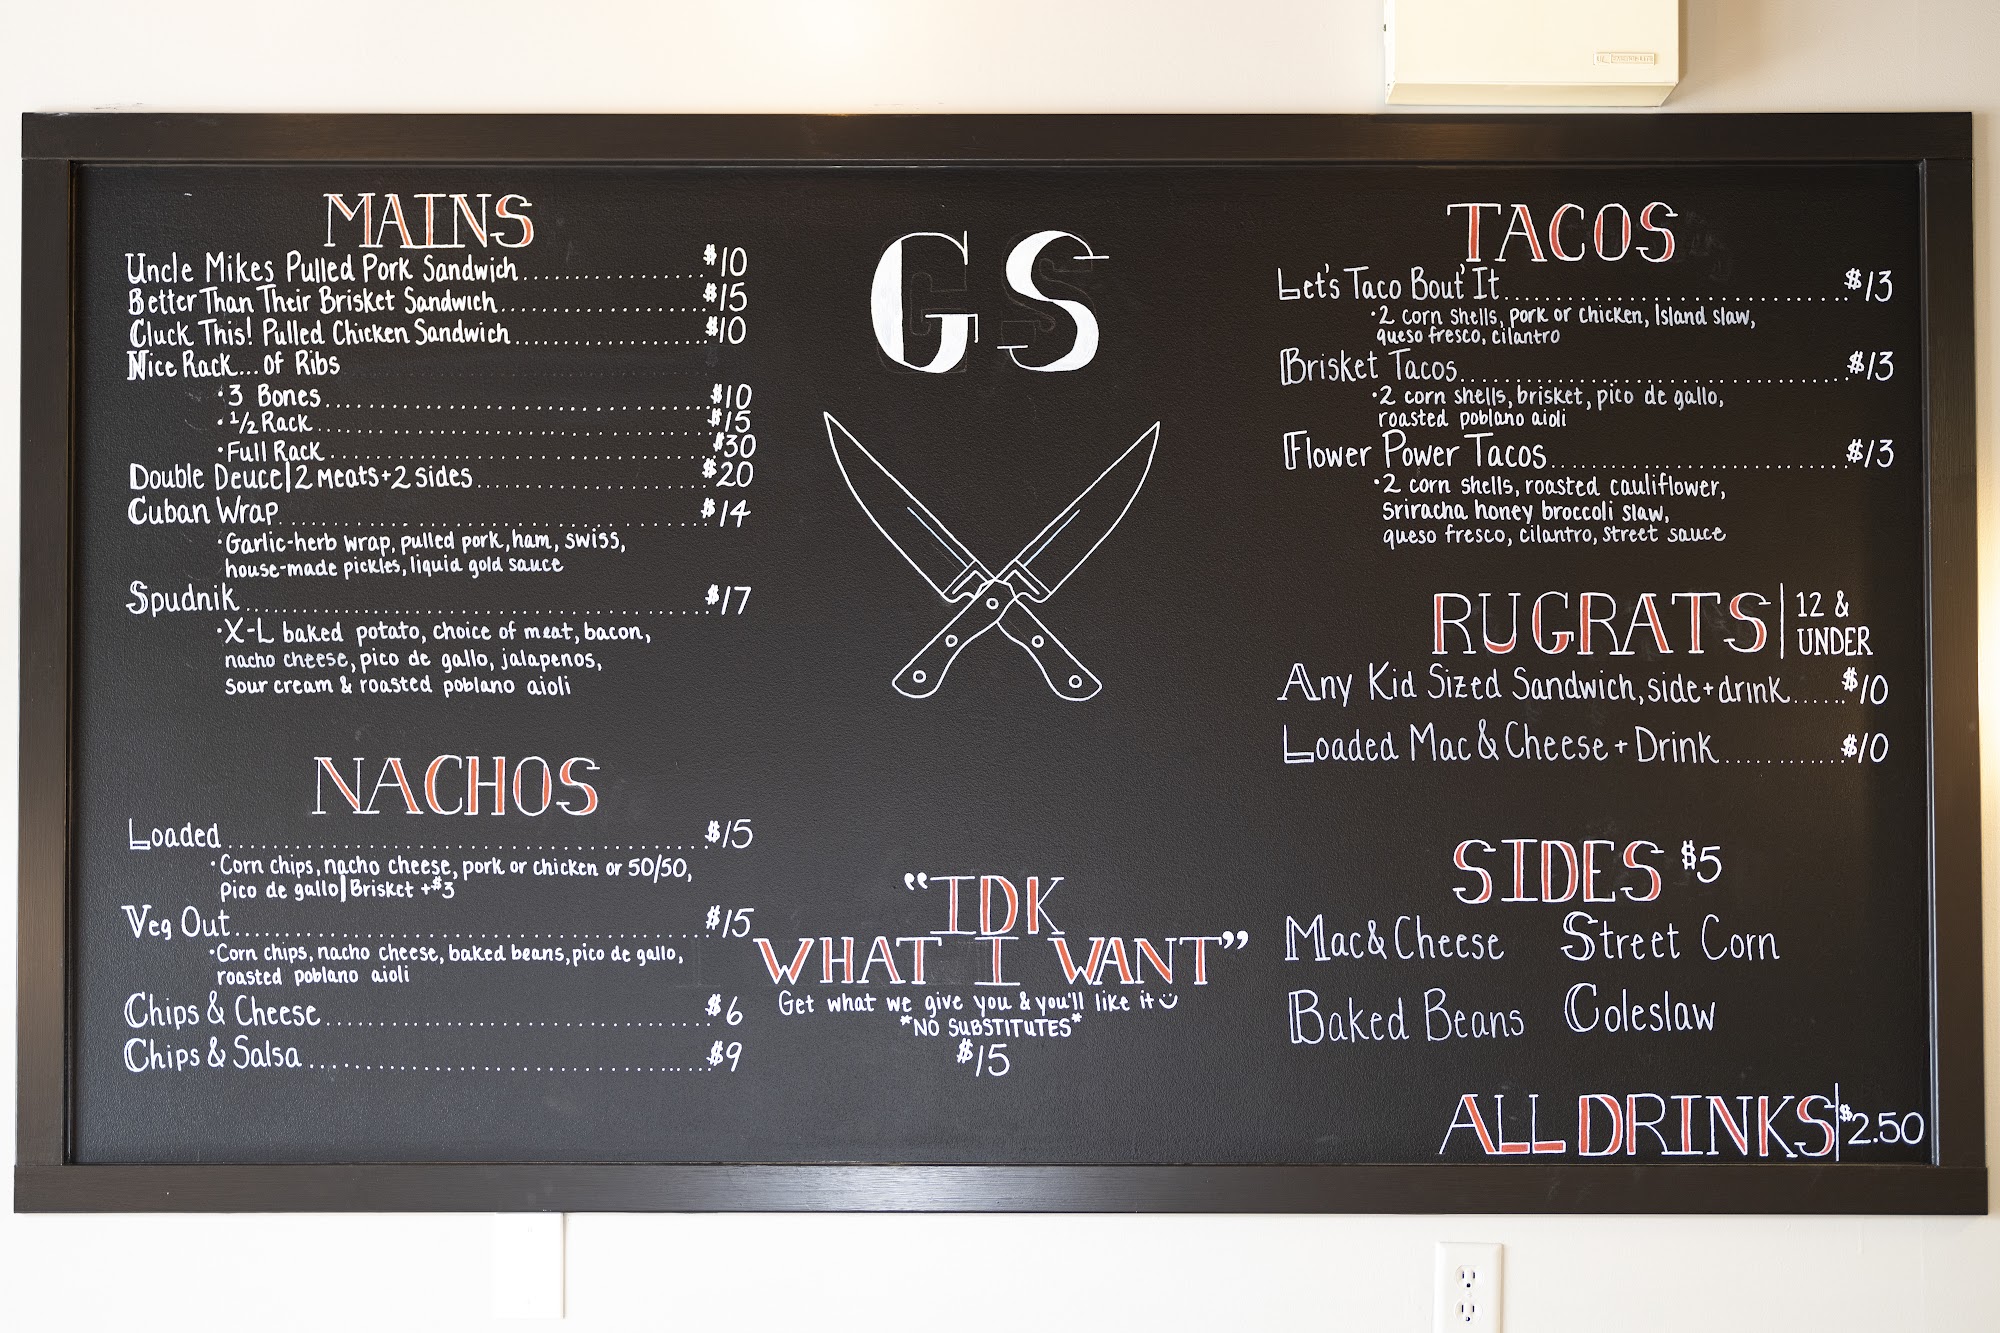 MAINS
Uncle Mikes Pulled Pork Sandwich $10
Better Than Their Brisket Sandwich $15
Cluck This! Pulled Chicken Sandwich $10
Nice Rack... of Ribs
·3 Bones $10
·1/2 Rack $15
·Full Rack $30
Double Deuce|2 Meats+2 Sides $20
Cuban Wrap $14
·Garlic-herb wrap, pulled pork, ham, swiss,
house-made pickles, liquid gold sauce
Spudnik $17
·X-L baked potato, choice of meat, bacon,
nacho cheese, pico de gallo, jalapenos,
sour cream & roasted poblano aioli
NACHOS
Loaded $15
·Corn chips, nacho cheese, pork or chicken or 50/50,
pico de gallo|Brisket +$3
Veg Out $15
·Corn chips, nacho cheese, baked beans, pico de gallo,
roasted poblano aioli
Chips & Cheese $6
Chips & Salsa $9
GS
"IDK
WHAT I WANT"
Get what we give you & you'll like it
*NO SUBSTITUTES*
$15
TACOS
Let's Taco Bout' It $13
·2 corn shells, pork or chicken, Island slaw,
queso fresco, cilantro
Brisket Tacos $13
·2 corn shells, brisket, pico de gallo,
roasted poblano aioli
Flower Power Tacos $13
·2 corn shells, roasted cauliflower,
sriracha honey broccoli slaw,
queso fresco, cilantro, street sauce
RUGRATS|12 &
UNDER
Any Kid Sized Sandwich, side+drink $10
Loaded Mac & Cheese + Drink $10
SIDES $5
Mac & Cheese Street Corn
Baked Beans Coleslaw
ALL DRINKS|$2.50